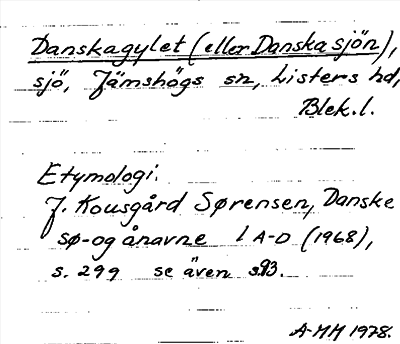 Danskagylet (eller Danska sjön),
sjö, Jämshögs sn, Listers hd,
Blek. l.
Etymologi:
J. Kousgård Sørensen, Danske
sø- og ånavne 1 A-D (1968),
s. 299 se även s. 93.
A-MH 1978.